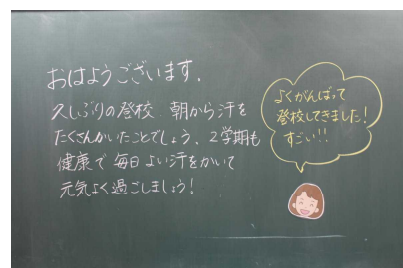 おはようございます。
久しぶりの登校、朝から汗を
たくさんかいたことでしょう。2学期も
健康で毎日よい汗をかいて
元気よく過ごしましょう!
よくがんばって
登校してきました!
すごい!!